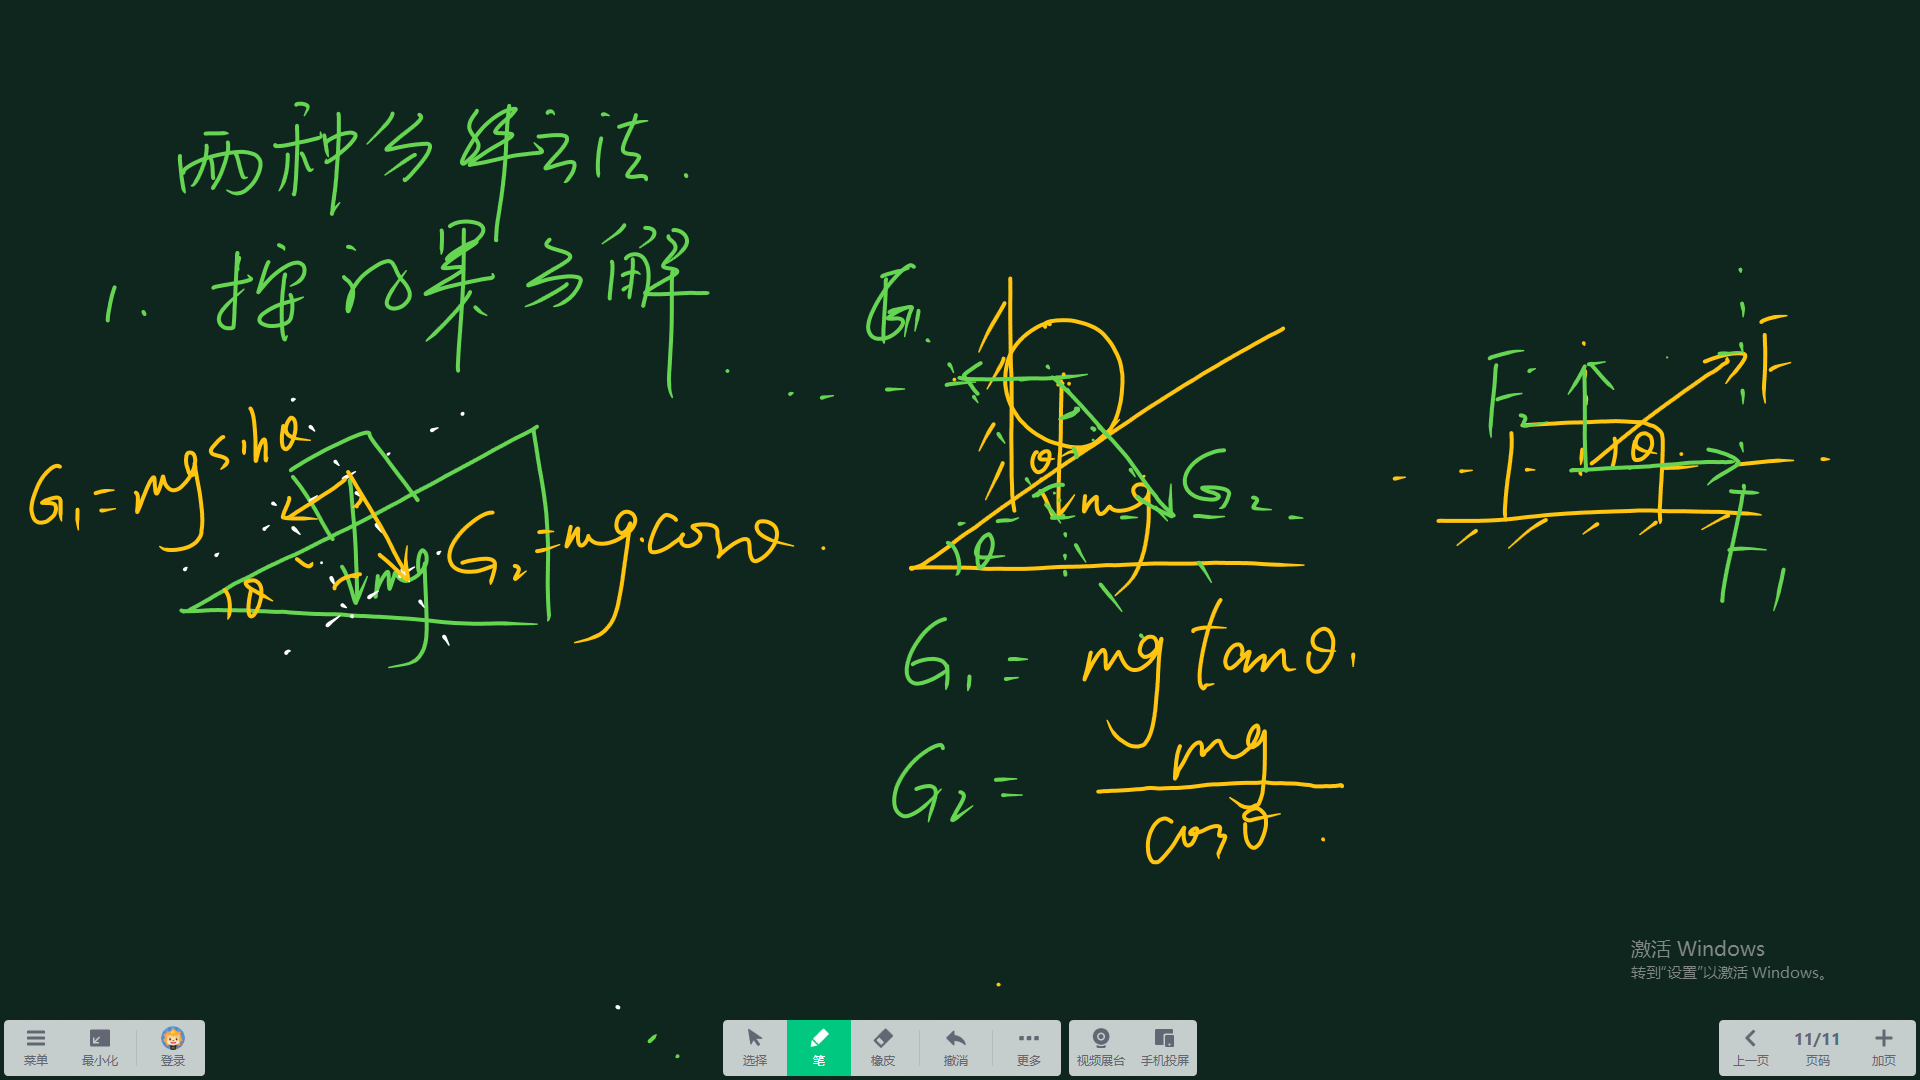 两种分解方法.
1. 按效果分解.
G₁=mgsinθ
G₂=mg.cosθ.
mg
θ
G₁
θ
mg
G₂
θ
G₁= mgtanθ.
G₂= mg/cosθ.
F
F₂
θ
F₁
激活 Windows
转到"设置"以激活 Windows。
菜单
最小化
登录
选择
笔
橡皮
撤消
更多
视频展台
手机投屏
上一页
11/11
页码
加页